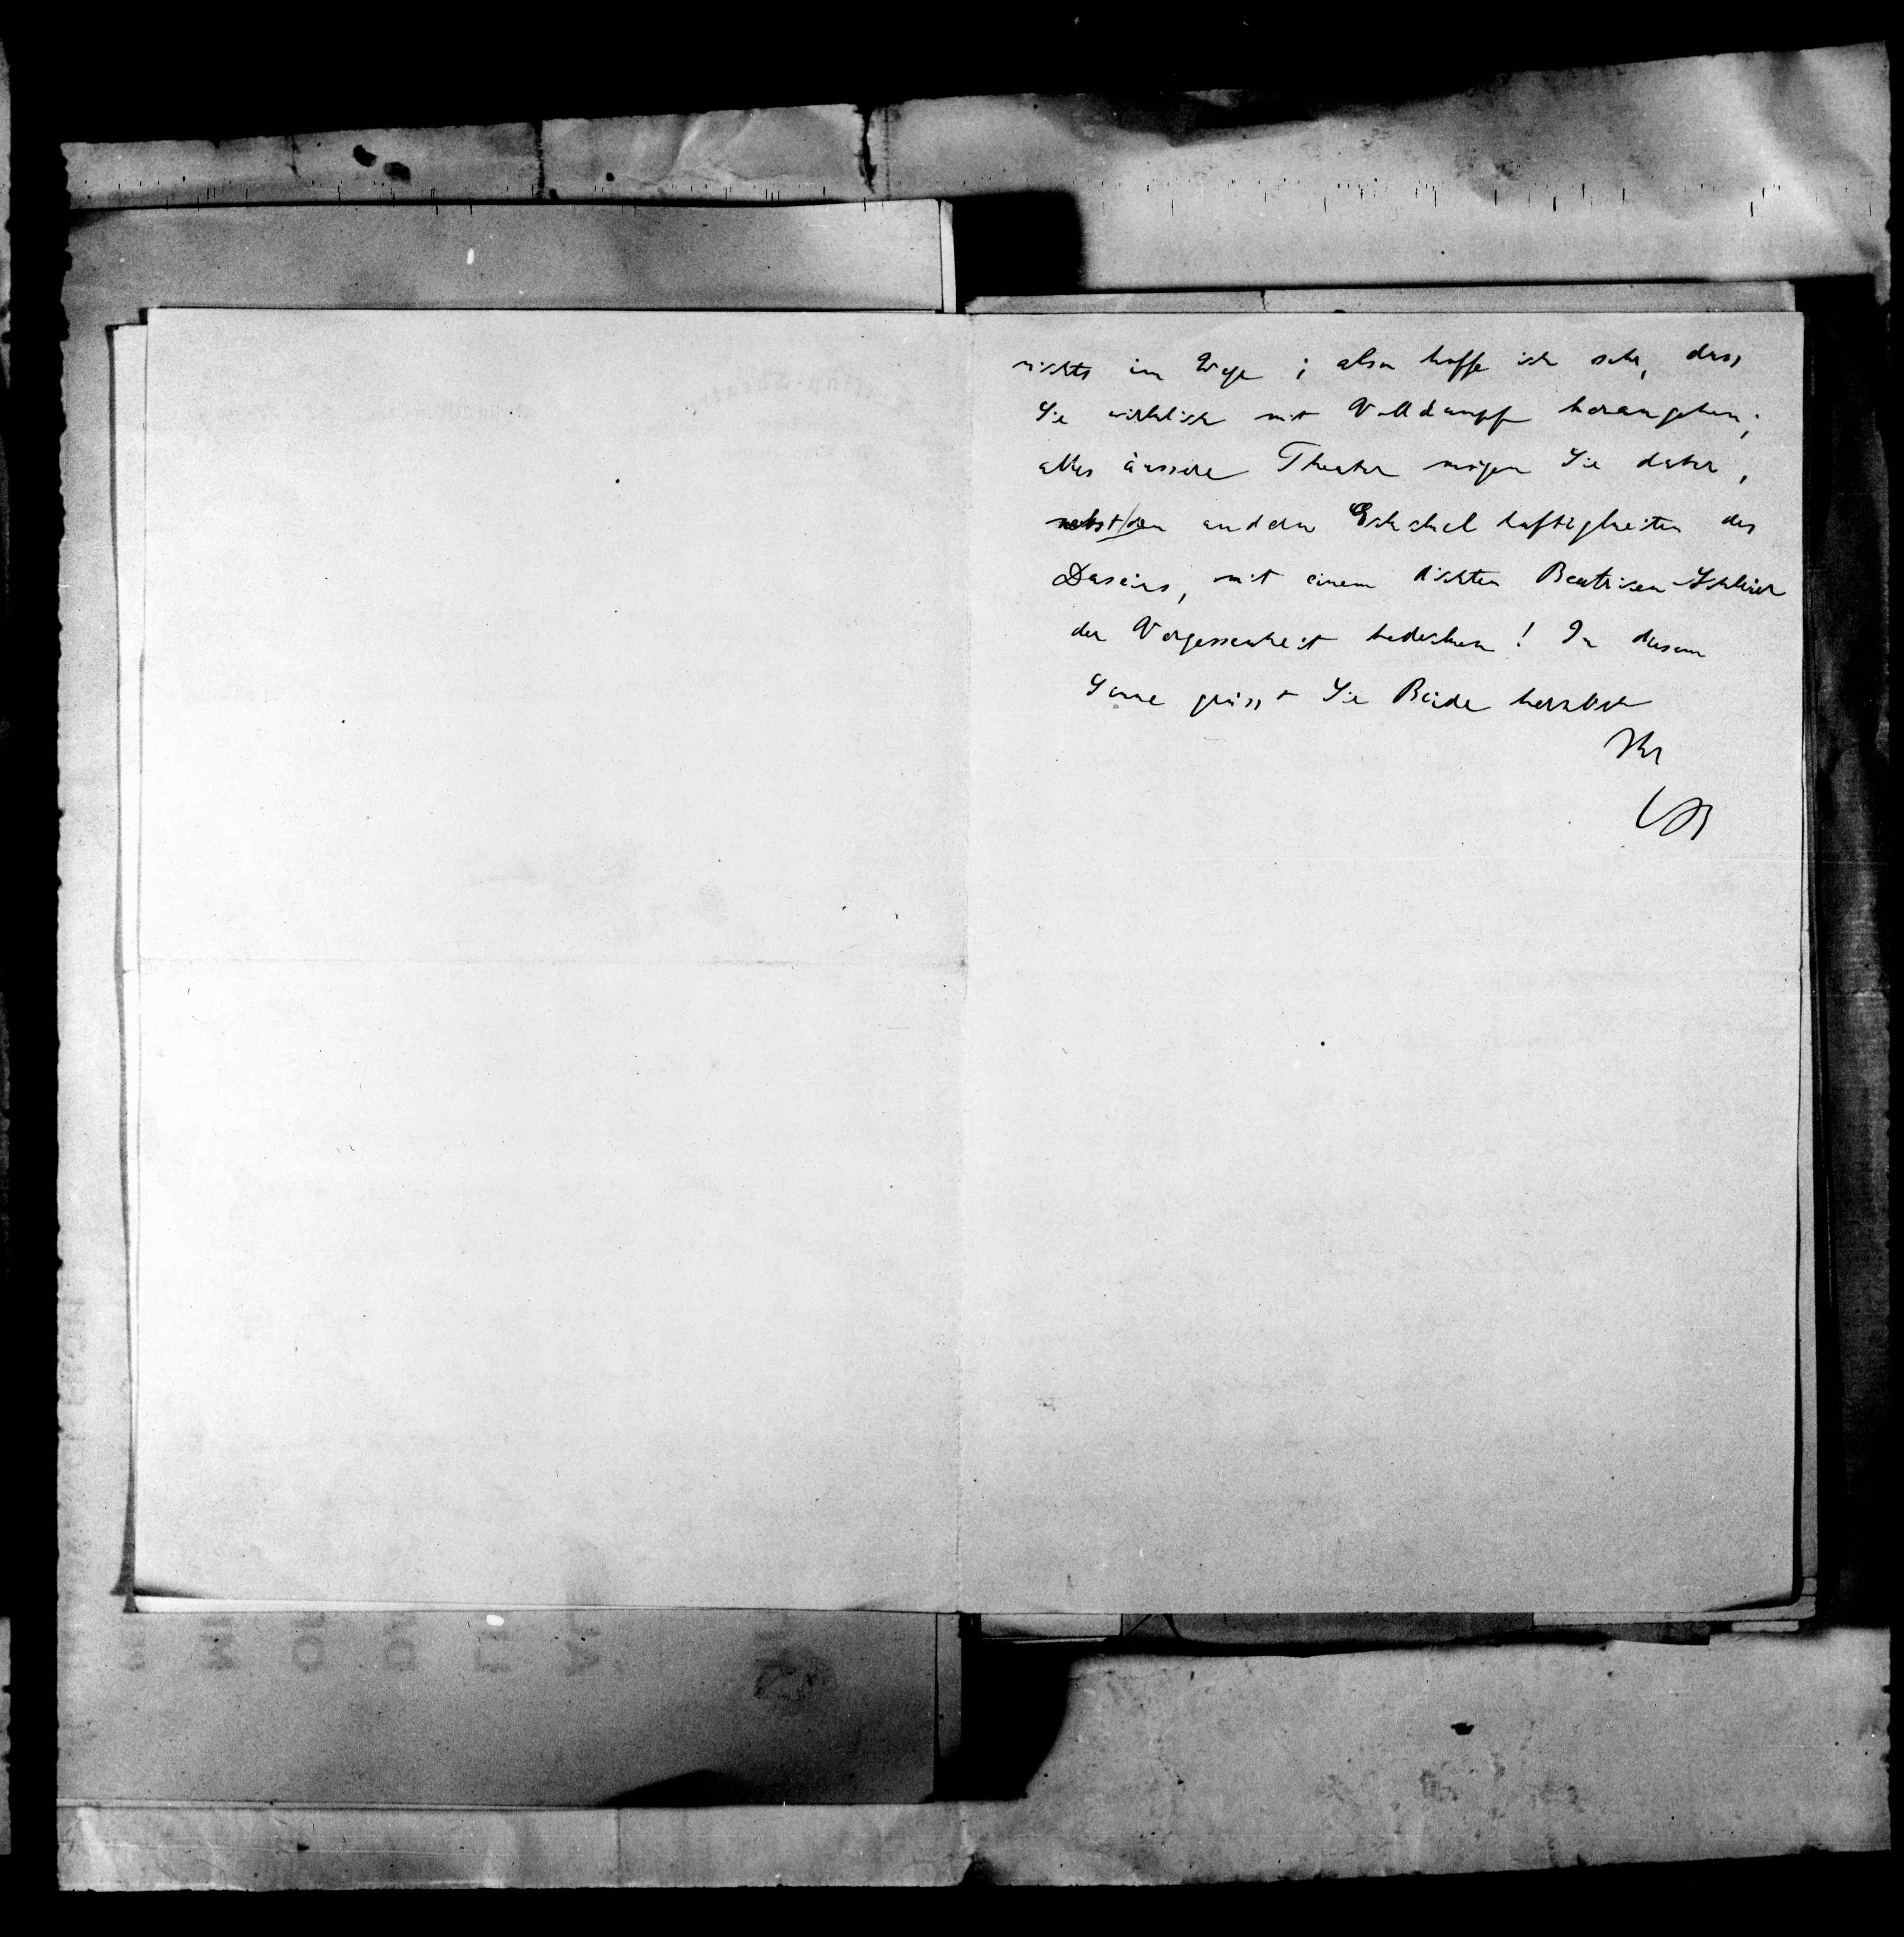 nichts im Wege ; also hoffe ich sehr, dass
Sie wirklich mit Volldampf herangehen;
alles äussere Theater mögen Sie daher,
nebst den andern Ekelhaftigkeiten des
Daseins, mit einem dichten Beatricen-Schleier
der Vergessenheit bedecken! In diesem
Sinne grüsst Sie Beide herzlichst
Ihr